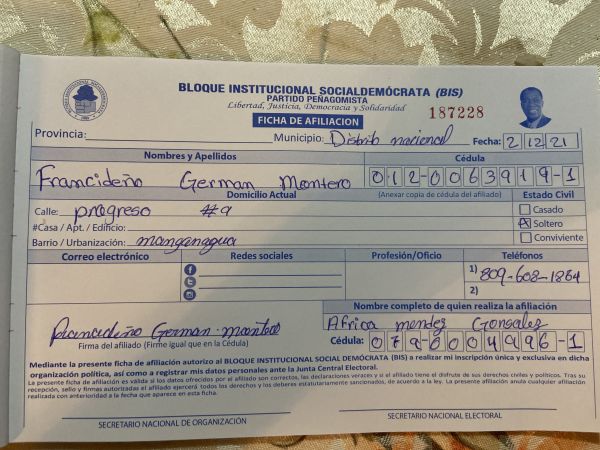 BLOQUE INSTITUCIONAL SOCIALDEMÓCRATA (BIS)
PARTIDO PEÑAGOMISTA
Libertad, Justicia, Democracia y Solidaridad
187228
FICHA DE AFILIACION
Provincia: Municipio: Distrito nacional Fecha: 2 12 21
Nombres y Apellidos Cédula
Francideño German Montero 012-0063919-1
Domicilio Actual (Anexar copia de cédula del afiliado) Estado Civil
Calle: progreso #9 Casado
#Casa / Apt. / Edificio: Soltero
Barrio / Urbanización: manganagua Conviviente
Correo electrónico Redes sociales Profesión/Oficio Teléfonos
1) 809-602-1864
2)
Nombre completo de quien realiza la afiliación
Francideño German montero Africa mendez Gonzalez
Firma del afiliado (Firme igual que en la Cédula) Cédula: 079-0004996-1
Mediante la presente ficha de afiliación autorizo al BLOQUE INSTITUCIONAL SOCIAL DEMÓCRATA (BIS) a realizar mi inscripción única y exclusiva en dicha
organización política, así como a registrar mis datos personales ante la Junta Central Electoral.
La presente ficha de afiliación es válida si los datos ofrecidos por el afiliado son correctos, las declaraciones veraces y si el afiliado tiene el disfrute de sus derechos civiles y políticos. Tras su
recepción, sello y firmas autorizadas el afiliado ejercerá todos los derechos y los deberes estatutariamente sancionados, de acuerdo a la ley. La presente afiliación anula cualquier afiliación
realizada con anterioridad a la fecha que aparece en esta ficha.
SECRETARIO NACIONAL DE ORGANIZACIÓN SECRETARIO NACIONAL ELECTORAL